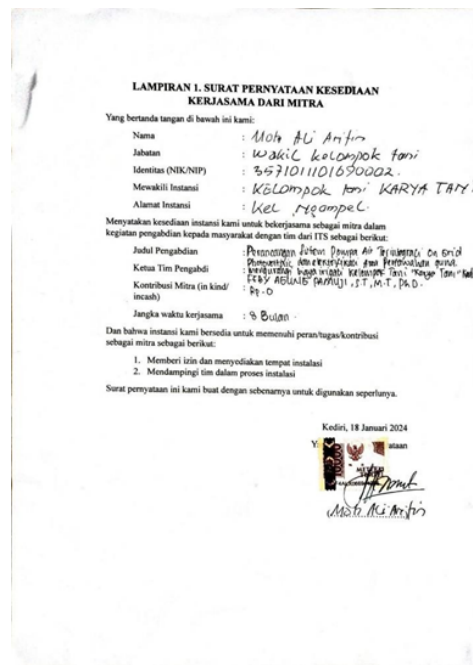 LAMPIRAN 1. SURAT PERNYATAAN KESEDIAAN
KERJASAMA DARI MITRA
Yang bertanda tangan di bawah ini kami:
Nama : Moh Ali Arifin
Jabatan : Wakil kelompok tani
Identitas (NIK/NIP) : 3571011101690002.
Mewakili Instansi : Kelompok tani KARYA TANI
Alamat Instansi : Kel Ngampel.
Menyatakan kesediaan instansi kami untuk bekerjasama sebagai mitra dalam
kegiatan pengabdian kepada masyarakat dengan tim dari ITS sebagai berikut:
Judul Pengabdian : Perancangan Sistem Pompa Air Terintegrasi On Grid
Photovoltaic dan elektrifikasi area Persawahan guna
mengurangi biaya irigasi Kelompok Tani "Karya Tani"
Ketua Tim Pengabdi : FEBY AGUNG PAMUJI, S.T, M.T, Ph.D.
Kontribusi Mitra (in kind/ : Rp. 0
incash)
Jangka waktu kerjasama : 8 Bulan.
Dan bahwa instansi kami bersedia untuk memenuhi peran/tugas/kontribusi
sebagai mitra sebagai berikut:
1. Memberi izin dan menyediakan tempat instalasi
2. Mendampingi tim dalam proses instalasi
Surat pernyataan ini kami buat dengan sebenarnya untuk digunakan seperlunya.
Kediri, 18 Januari 2024
Y ataan
10000
METERAI
Moh Ali Arifin